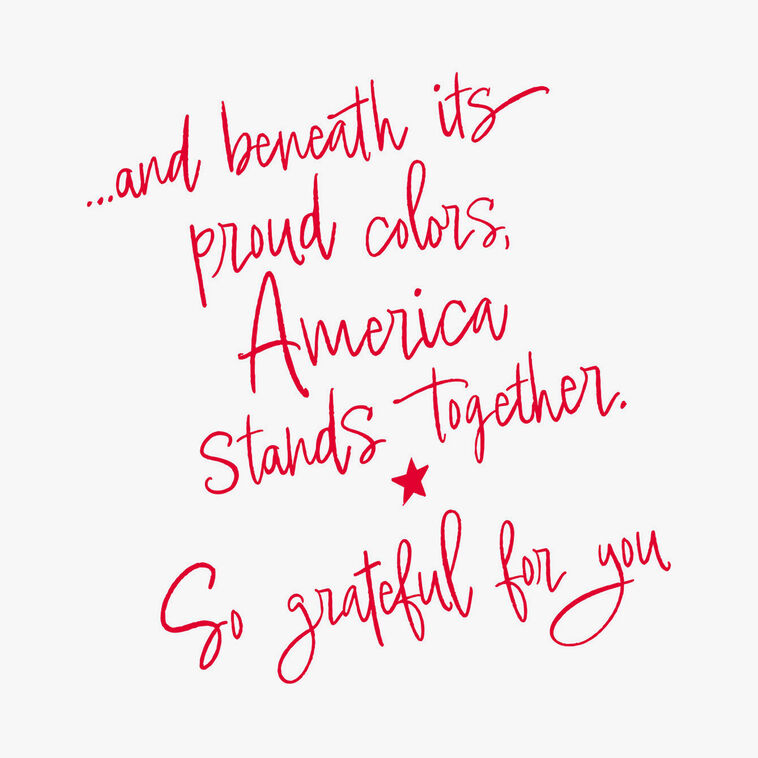 ...and beneath its
proud colors,
America
stands together.
So grateful for you